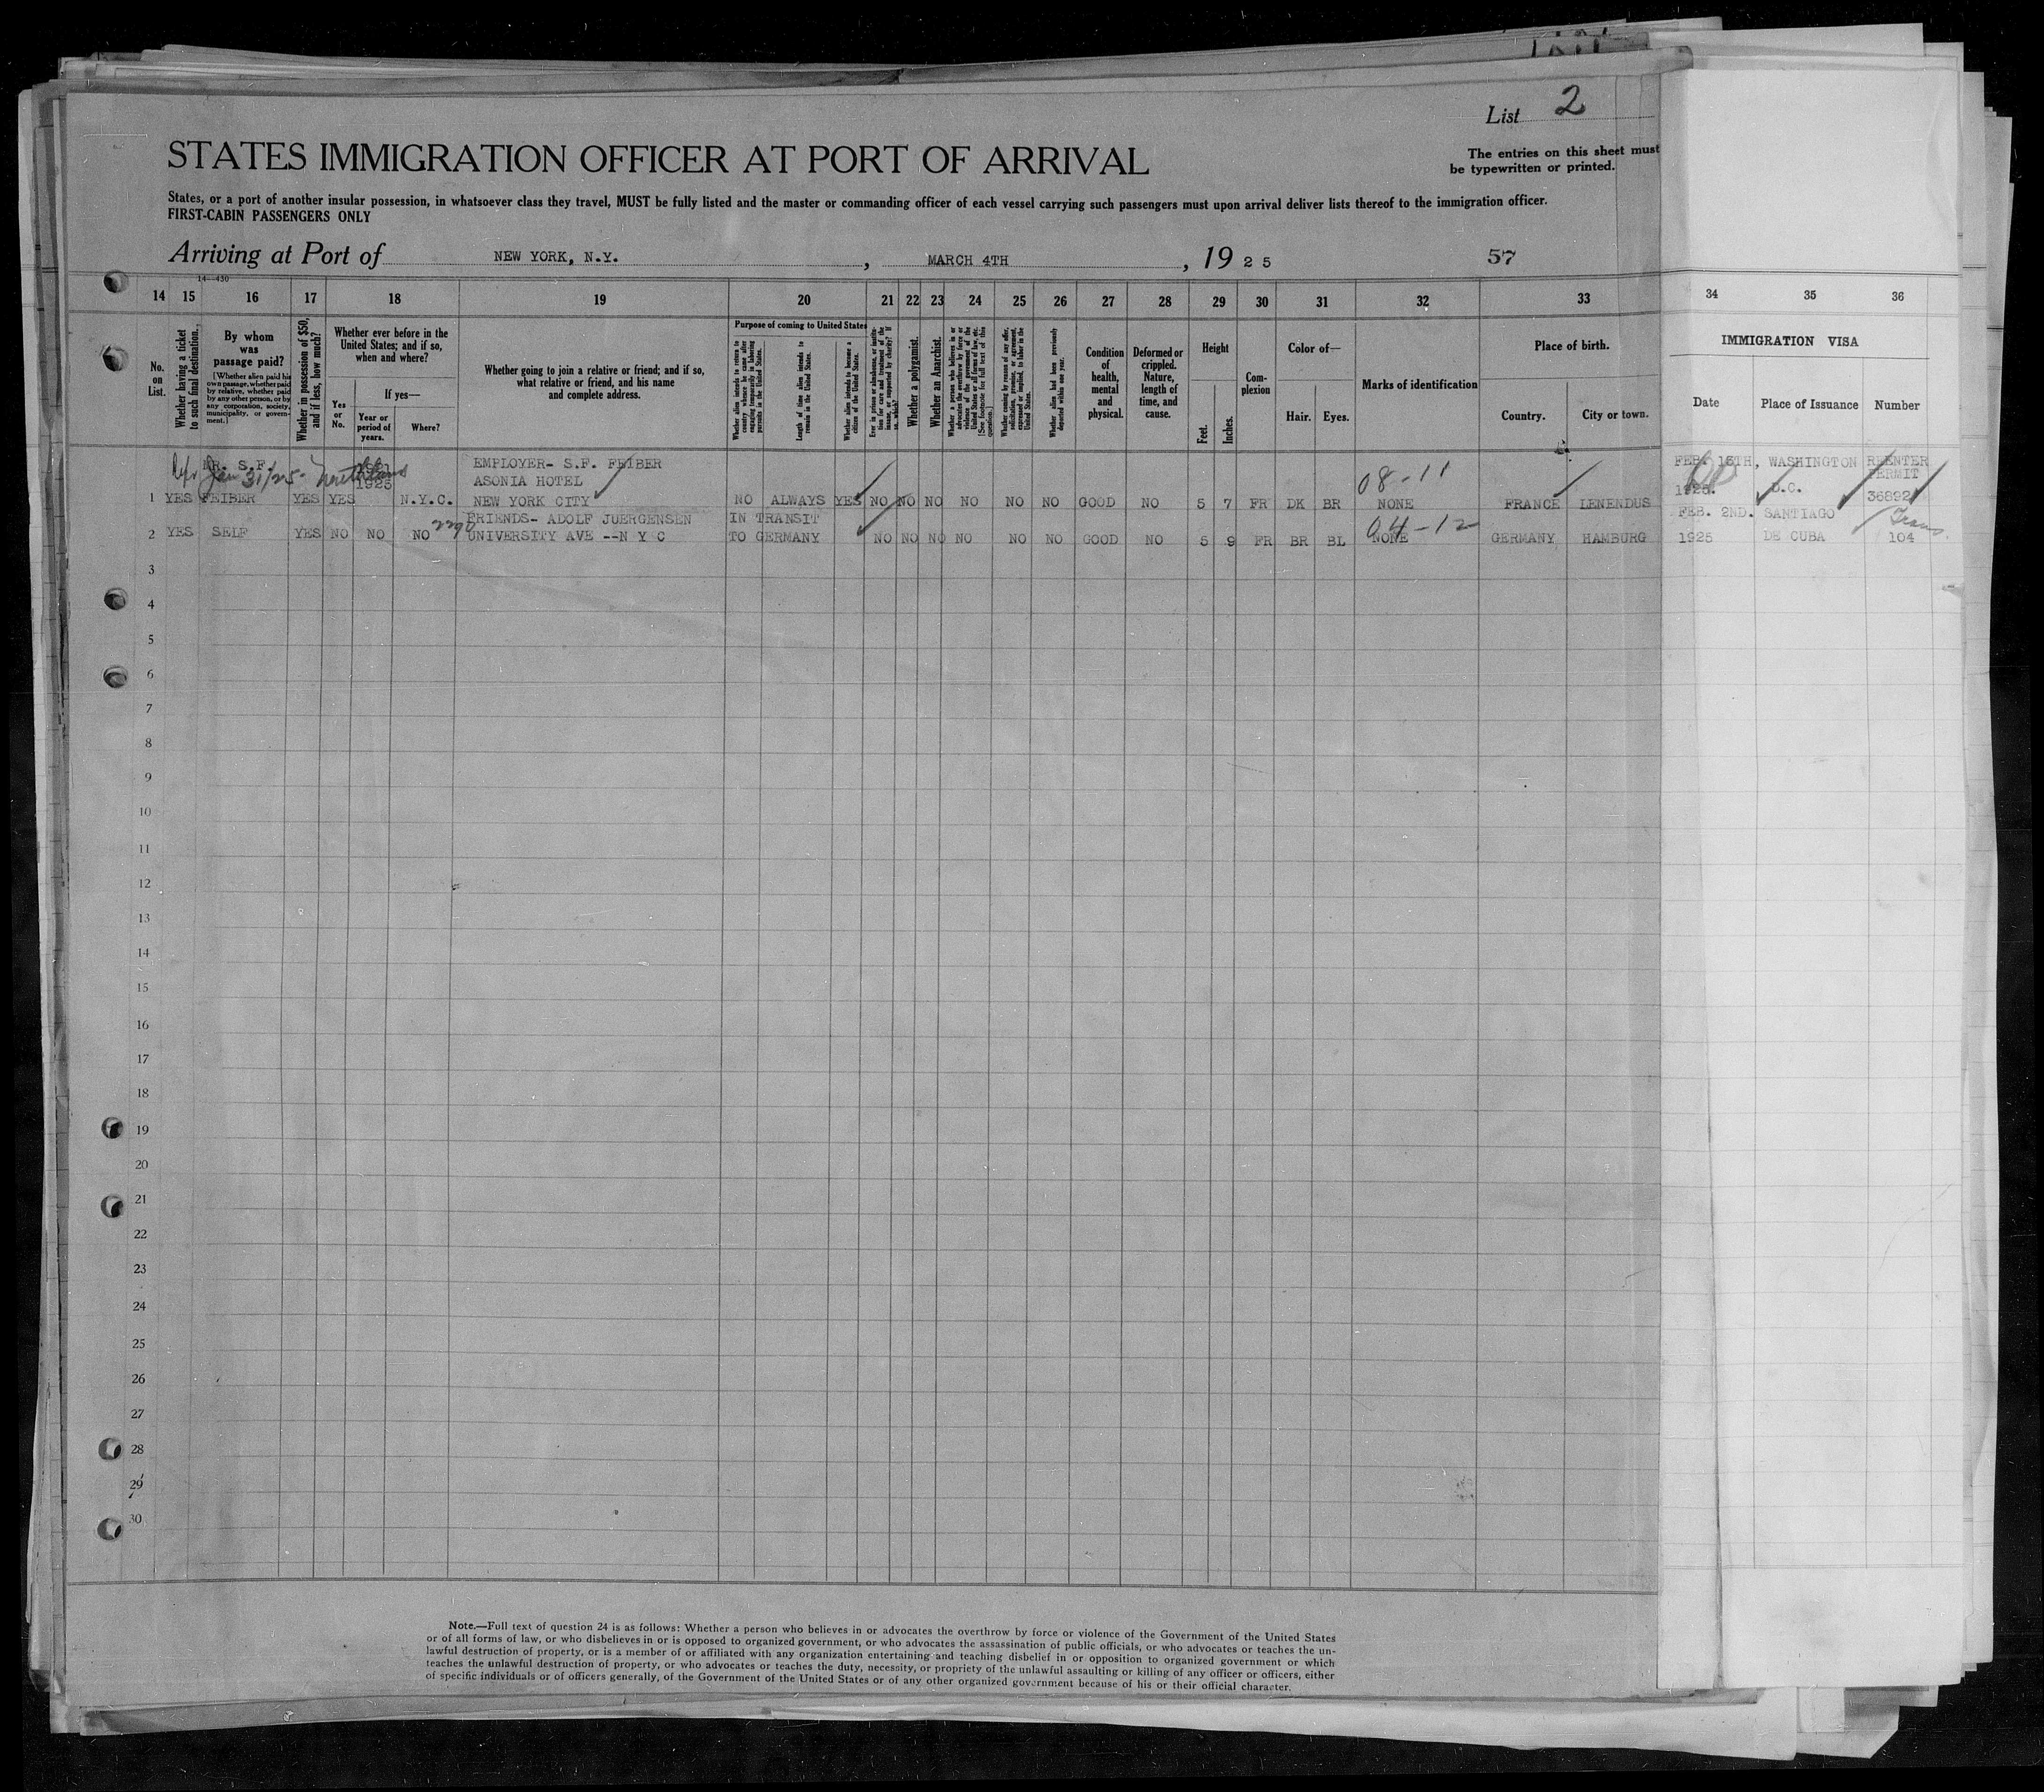 List 2
STATES IMMIGRATION OFFICER AT PORT OF ARRIVAL
The entries on this sheet must
be typewritten or printed.
States, or a port of another insular possession, in whatsoever class they travel, MUST be fully listed and the master or commanding officer of each vessel carrying such passengers must upon arrival deliver lists thereof to the immigration officer.
FIRST-CABIN PASSENGERS ONLY
Arriving at Port of NEW YORK, N.Y. , MARCH 4TH , 19 25 57
14—430
14 15 16 17 18 19 20 21 22 23 24 25 26 27 28 29 30 31 32 33 34 35 36
No. on List.
Whether having a ticket to such final destination.
By whom was passage paid?
[Whether alien paid his own passage, whether paid by relative, whether paid by any other person, or by any corporation, society, municipality, or government.]
Whether in possession of $50, and if less, how much?
Whether ever before in the United States; and if so, when and where?
Yes or No.
If yes—
Year or period of years.
Where?
Whether going to join a relative or friend; and if so, what relative or friend, and his name and complete address.
Purpose of coming to United States
Whether alien intends to return to country whence he came after engaging temporarily in laboring pursuits in the United States.
Length of time alien intends to remain in the United States.
Whether alien intends to become a citizen of the United States.
Ever in prison or almshouse, or institution for care and treatment of the insane, or supported by charity? If so, which?
Whether a polygamist.
Whether an Anarchist.
Whether a person who believes in or advocates the overthrow by force or violence of the Government of the United States or all forms of law, etc. [See footnote for full text of this question.]
Whether coming by reason of any offer, solicitation, promise, or agreement, expressed or implied, to labor in the United States.
Whether alien had been previously deported within one year.
Condition of health, mental and physical.
Deformed or crippled. Nature, length of time, and cause.
Height
Feet. Inches.
Complexion
Color of—
Hair. Eyes.
Marks of identification
Place of birth.
Country. City or town.
IMMIGRATION VISA
Date Place of Issuance Number
MR. S.F. 1921 EMPLOYER- S.F. FEIBER FEB. 16TH, WASHINGTON REENTER
Jan 31/25- 1925 ASONIA HOTEL 08-11 PERMIT
1 YES FEIBER YES YES N.Y.C. NEW YORK CITY NO ALWAYS YES NO NO NO NO NO NO GOOD NO 5 7 FR DK BR NONE FRANCE LENENDUS 1925. D.C. 36892
2290 FRIENDS- ADOLF JUERGENSEN IN TRANSIT 04-12 FEB. 2ND. SANTIAGO Trans.
2 YES SELF YES NO NO NO UNIVERSITY AVE --N Y C TO GERMANY NO NO NO NO NO NO GOOD NO 5 9 FR BR BL NONE GERMANY HAMBURG 1925 DE CUBA 104
3
4
5
6
7
8
9
10
11
12
13
14
15
16
17
18
19
20
21
22
23
24
25
26
27
28
29
30
Note.—Full text of question 24 is as follows: Whether a person who believes in or advocates the overthrow by force or violence of the Government of the United States
or of all forms of law, or who disbelieves in or is opposed to organized government, or who advocates the assassination of public officials, or who advocates or teaches the un-
lawful destruction of property, or is a member of or affiliated with any organization entertaining and teaching disbelief in or opposition to organized government or which
teaches the unlawful destruction of property, or who advocates or teaches the duty, necessity, or propriety of the unlawful assaulting or killing of any officer or officers, either
of specific individuals or of officers generally, of the Government of the United States or of any other organized government because of his or their official character.